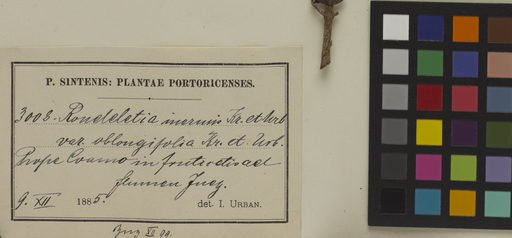 P. SINTENIS: PLANTAE PORTORICENSES.
3008. Rondeletia inermis Kr. et Urb
var. oblongifolia Kr. et Urb.
Prope Coamo in fruticetis ad
flumen Juey.
9. XII 1885. det. I. URBAN.